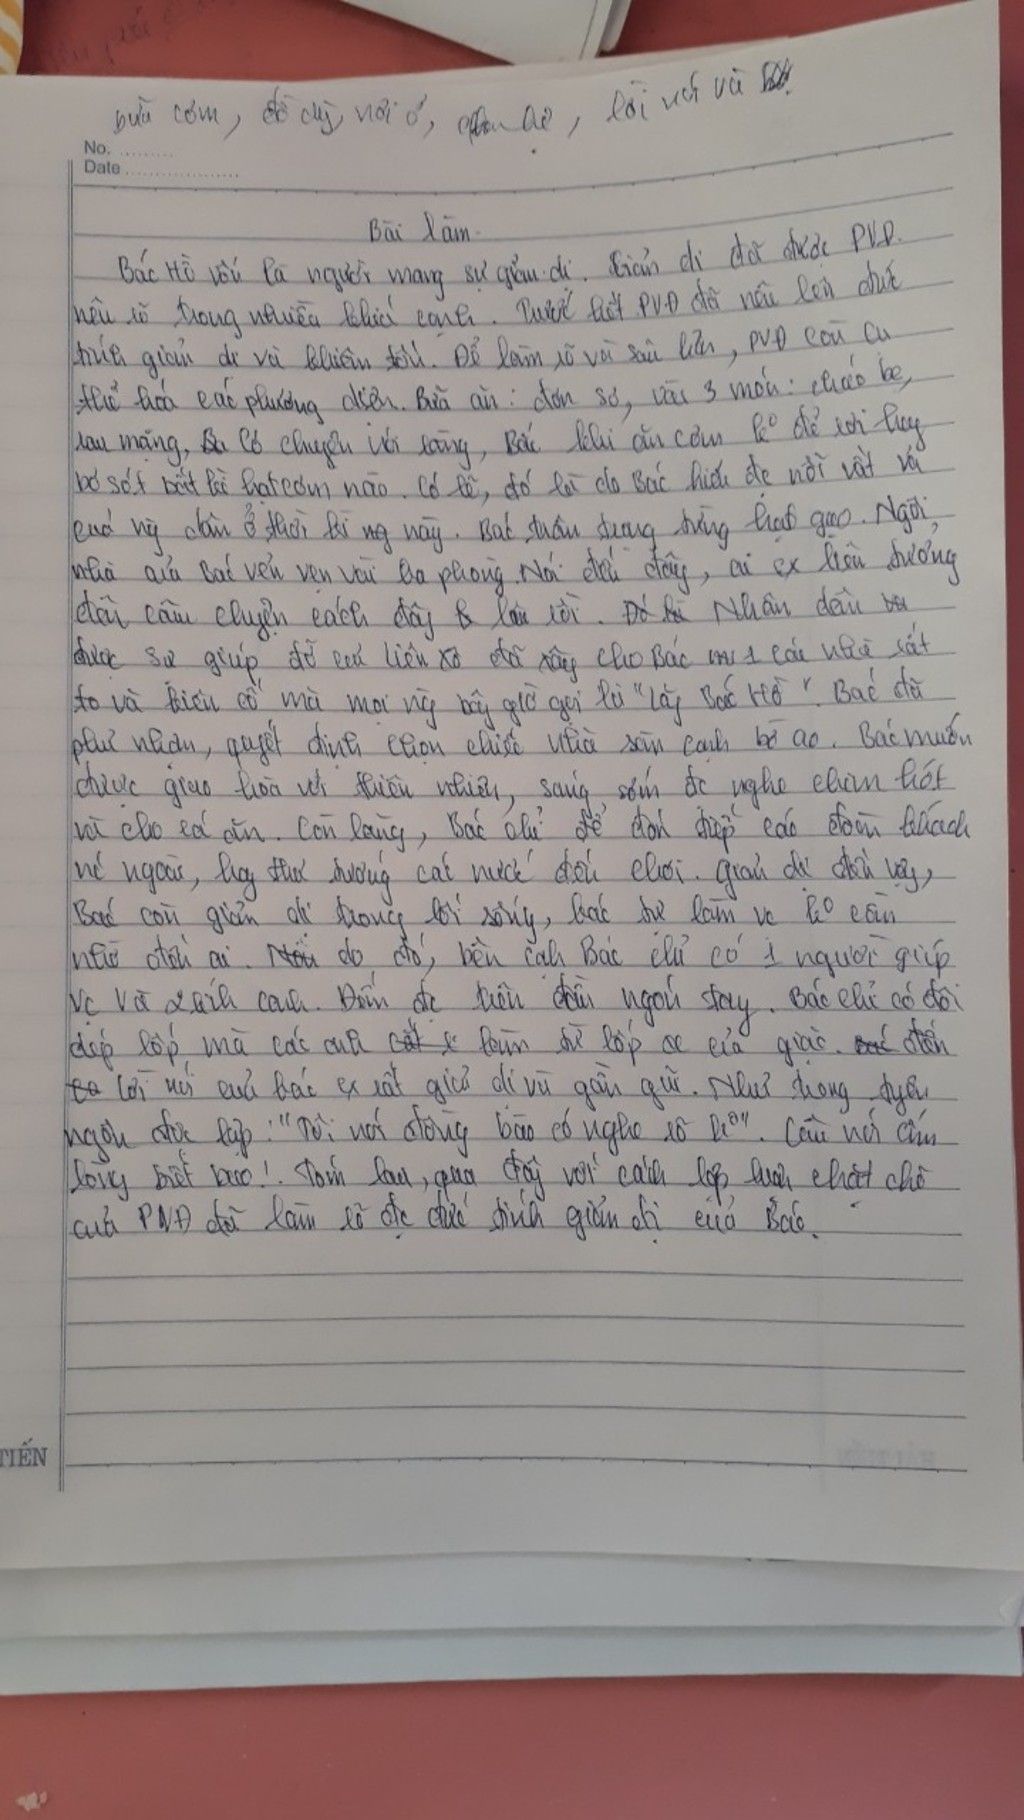 bữa cơm, đồ dùng, nơi ở, quan hệ, lời nói và
No. ..........
Date ....................
Bài làm.
Bác Hồ vốn là người mang sự giản dị. Giản dị đã được PVĐ
nêu rõ trong nhiều khía cạnh. Trước hết PVĐ đã nêu lên đức
tính giản dị và khiêm tốn. Để làm rõ và sâu hơn, PVĐ còn cụ
thể hóa các phương diện. Bữa ăn: đơn sơ, vài 3 món: cháo bẹ,
rau măng, có chuyện kể rằng, Bác khi ăn cơm k° để rơi hay
bỏ sót bất kì hạt cơm nào. Có lẽ, đó là do Bác hiểu đc nỗi vất vả
của ng dân ở thời kì ng này. Bác trân trọng từng hạt gạo. Ngôi
nhà của Bác vẻn vẹn vài ba phòng. Nói đến đây, ai cx liên tưởng
đến câu chuyện cách đây lâu rồi. Nhân dân
được sự giúp đỡ của liên xô đã xây cho Bác 1 cái nhà rất
to và kiên cố mà mọi ng bây giờ gọi là "Lăng Bác Hồ". Bác đã
phủ nhận, quyết định chọn chiếc nhà sàn cạnh bờ ao. Bác muốn
được giao hòa với thiên nhiên, sáng sớm đc nghe chim hót
và cho cá ăn. Còn lăng, Bác chỉ để đón tiếp các đoàn khách
nc ngoài, hay thủ tướng các nước đến chơi. Giản dị đến vậy,
Bác còn giản dị trong lối sống, bác tự làm vc k° cần
nhờ đến ai. do đó, bên cạnh Bác chỉ có 1 người giúp
vc và cảnh. Đếm đc trên đầu ngón tay. Bác chỉ có đôi
dép lốp mà các anh làm từ lốp xe của giặc. đến
lời nói của bác cx rất giản dị và gần gũi. Như trong tuyên
ngôn độc lập: "Tôi nói đồng bào có nghe rõ k°". Câu nói ấm
lòng biết bao! Tóm lại, qua đây với cách lập luận chặt chẽ
của PVĐ đã làm rõ đc đức tính giản dị của Bác.
TIẾN